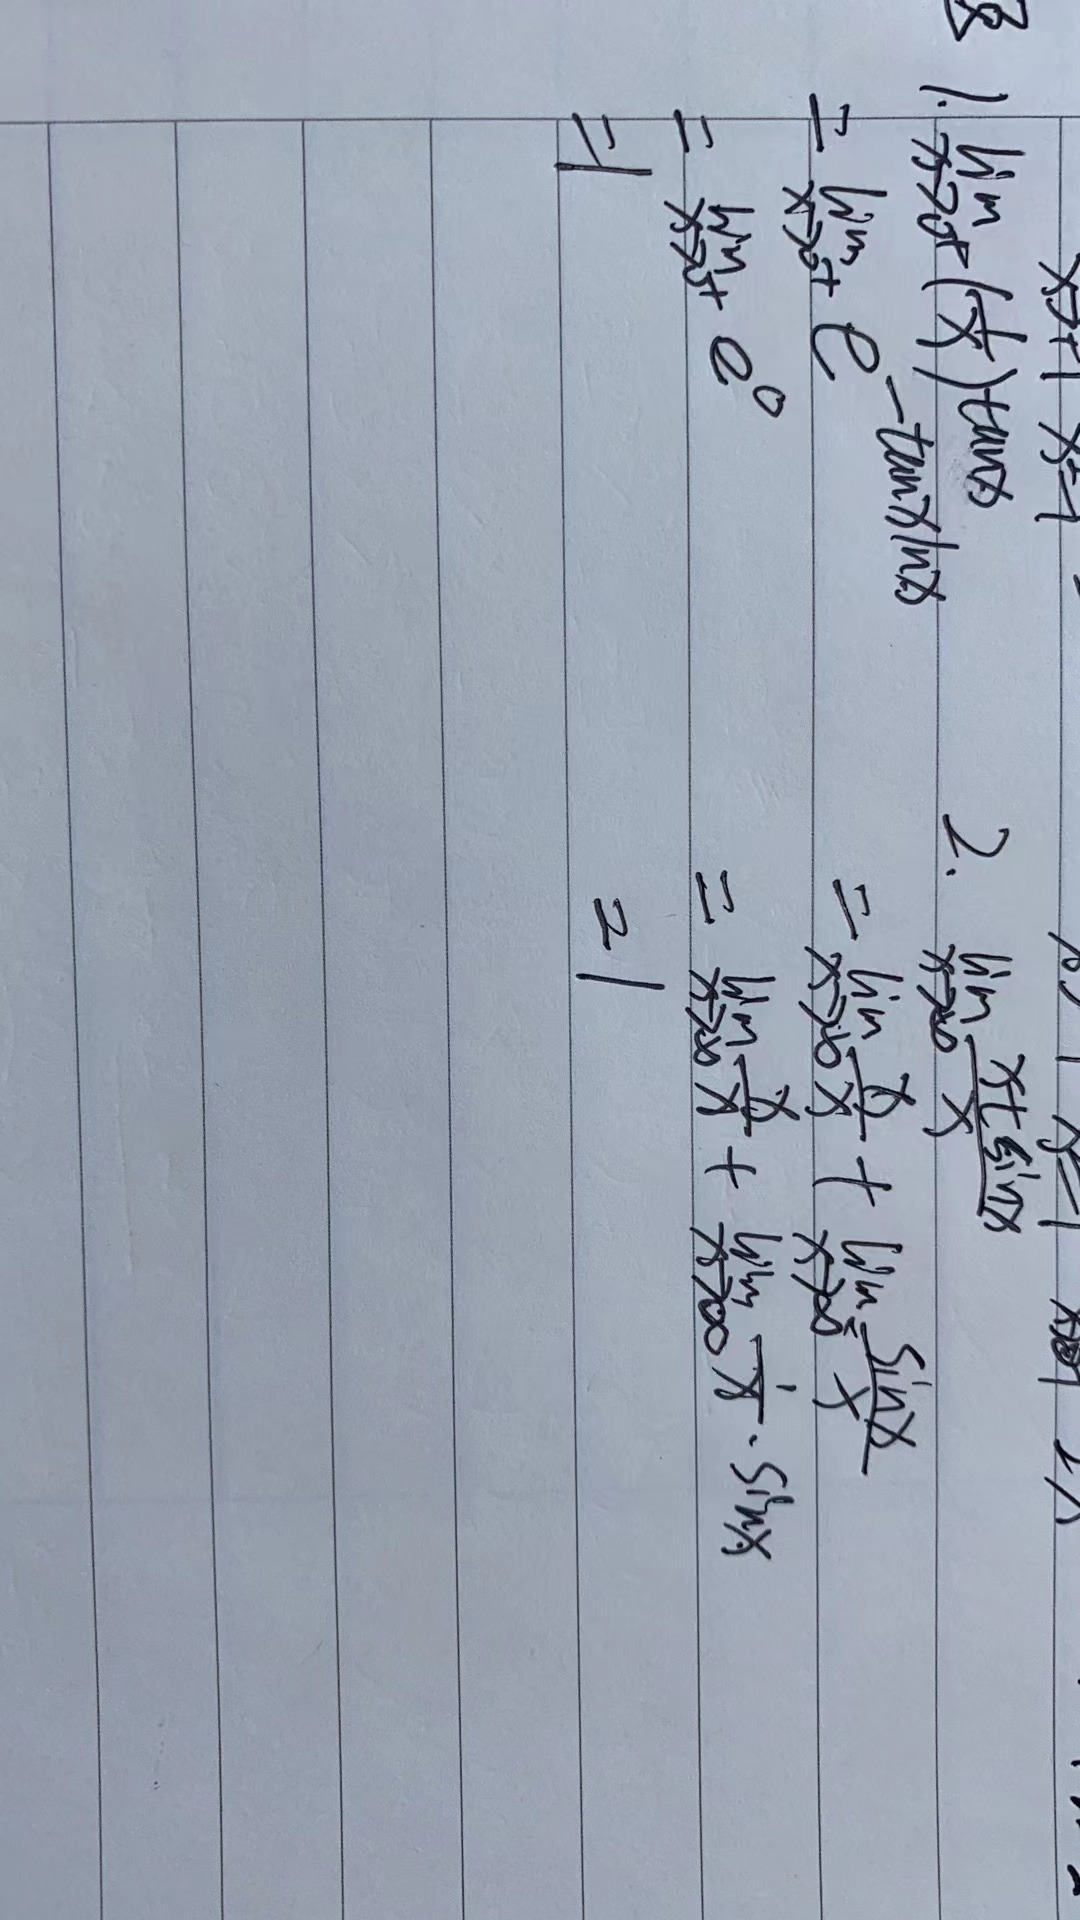 1. lim x→0⁺ (1/x)^tanx
= lim x→0⁺ e^(-tanxlnx)
= lim x→0⁺ e^0
=1
2. lim x→∞ (x+sinx)/x
= lim x→∞ x/x + lim x→∞ sinx/x
= lim x→∞ x/x + lim x→∞ 1/x · sinx
= 1